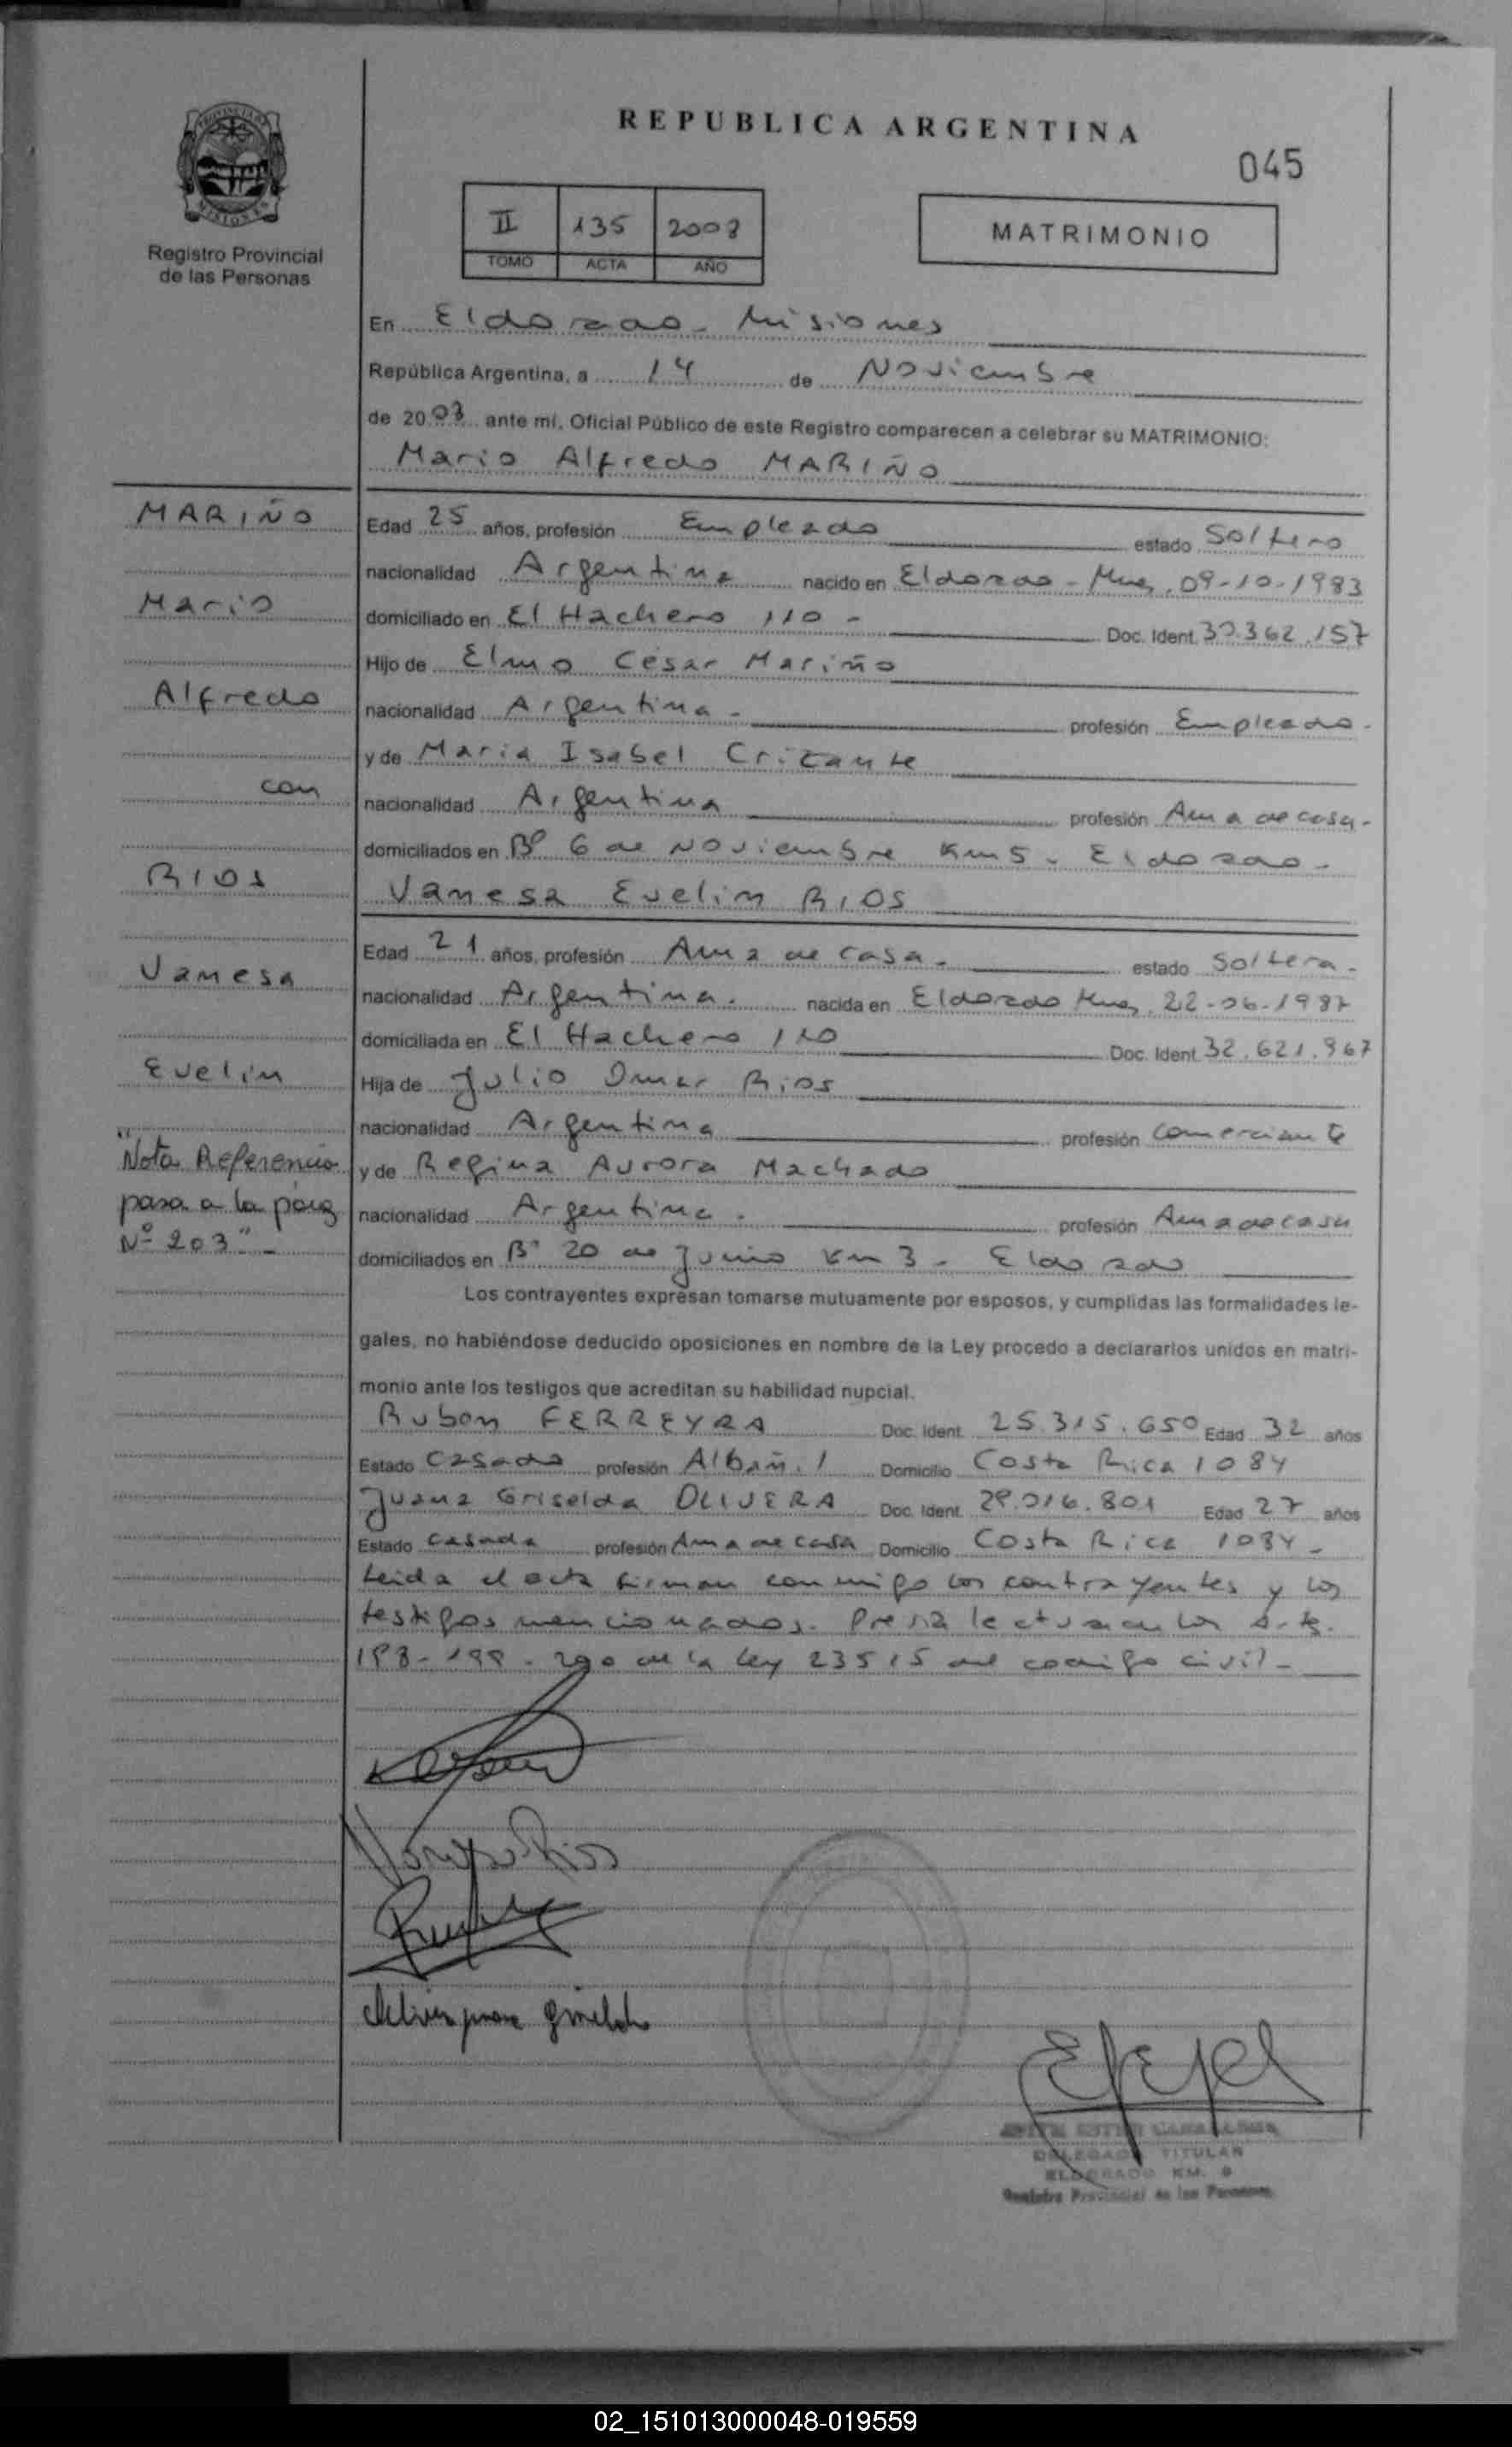 REPUBLICA ARGENTINA
045
PROVINCIA DE MISIONES
Registro Provincial
de las Personas
II 135 2008
TOMO ACTA AÑO
MATRIMONIO
En Eldorado - Misiones
República Argentina, a 14 de Noviembre
de 2008 ante mí, Oficial Público de este Registro comparecen a celebrar su MATRIMONIO:
Mario Alfredo MARIÑO
MARIÑO
Mario
Alfredo
con
RIOS
Vanesa
Evelin
"Nota Referencia
pasa a la pág
Nº 203"-
Edad 25 años, profesión Empleado estado Soltero
nacionalidad Argentina nacido en Eldorado - Mnes, 09-10-1983
domiciliado en El Hachero 110 - Doc. Ident. 30.362.157
Hijo de Elmo Cesar Mariño
nacionalidad Argentina - profesión Empleado.
y de Maria Isabel Crizante
nacionalidad Argentina profesión Ama de casa.
domiciliados en Bº 6 de Noviembre Km 5 - Eldorado -
Vanesa Evelin RIOS
Edad 21 años, profesión Ama de casa - estado Soltera -
nacionalidad Argentina. nacida en Eldorado Mnes, 22-06-1987
domiciliada en El Hachero 110 Doc. Ident. 32.621.967
Hija de Julio Omar Rios
nacionalidad Argentina profesión Comerciante
y de Regina Aurora Machado
nacionalidad Argentina. profesión Ama de casa
domiciliados en Bº 20 de Junio Km 3 - Eldorado
Los contrayentes expresan tomarse mutuamente por esposos, y cumplidas las formalidades le-
gales, no habiéndose deducido oposiciones en nombre de la Ley procedo a declararlos unidos en matri-
monio ante los testigos que acreditan su habilidad nupcial.
Ruben FERREYRA Doc. Ident. 25.315.650 Edad 32 años
Estado Casado profesión Albañil Domicilio Costa Rica 1084
Juana Griselda OLIVERA Doc. Ident. 29.016.801 Edad 27 años
Estado Casada profesión Ama de casa Domicilio Costa Rica 1084 -
Leida el acta firman conmigo los contrayentes y los
testigos mencionados. Previa lectura de los Arts.
198-199-200 de la Ley 23515 del codigo civil -
DELEGADA TITULAR
ELDORADO KM. 9
Registro Provincial de las Personas
02_151013000048-019559